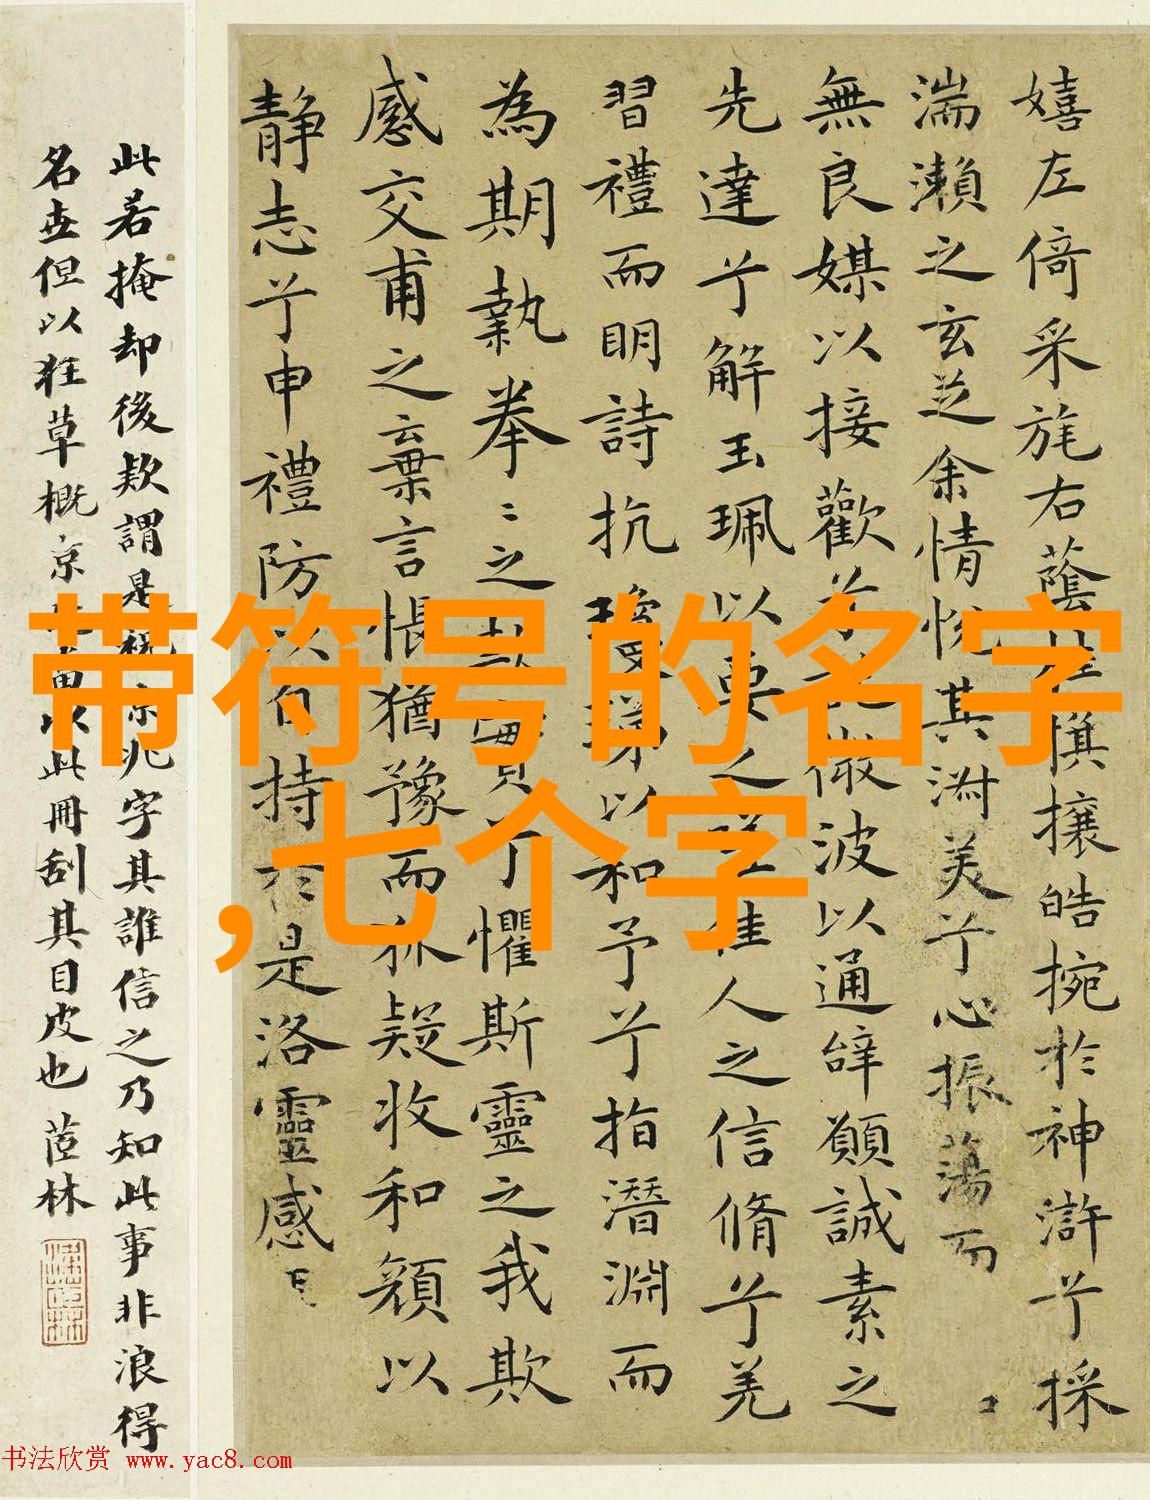 嬉左倚采旄右蔭桂旗攘皓捥於神滸兮採
湍瀨之玄芝余情悅其淑美兮心振蕩而
無良媒以接歡兮微波以通辭願誠素之
先達兮解玉珮以要之嗟佳人之信脩兮羌
習禮而明詩抗瓊珶以和予兮兮指潛淵而
為期執拳〻之款實兮懼斯靈之我欺
感交甫之棄言悵猶豫而狐疑收和顏以
静志兮申禮防以自持於是洛靈感
此若掩却後欵謂是祝京兆字其誰信之乃知此事非浪得
名世但以狂草概京以此冊刮其目皮也 茝林
带符号的名字
,七个字
书法欣赏 www.yac8.com